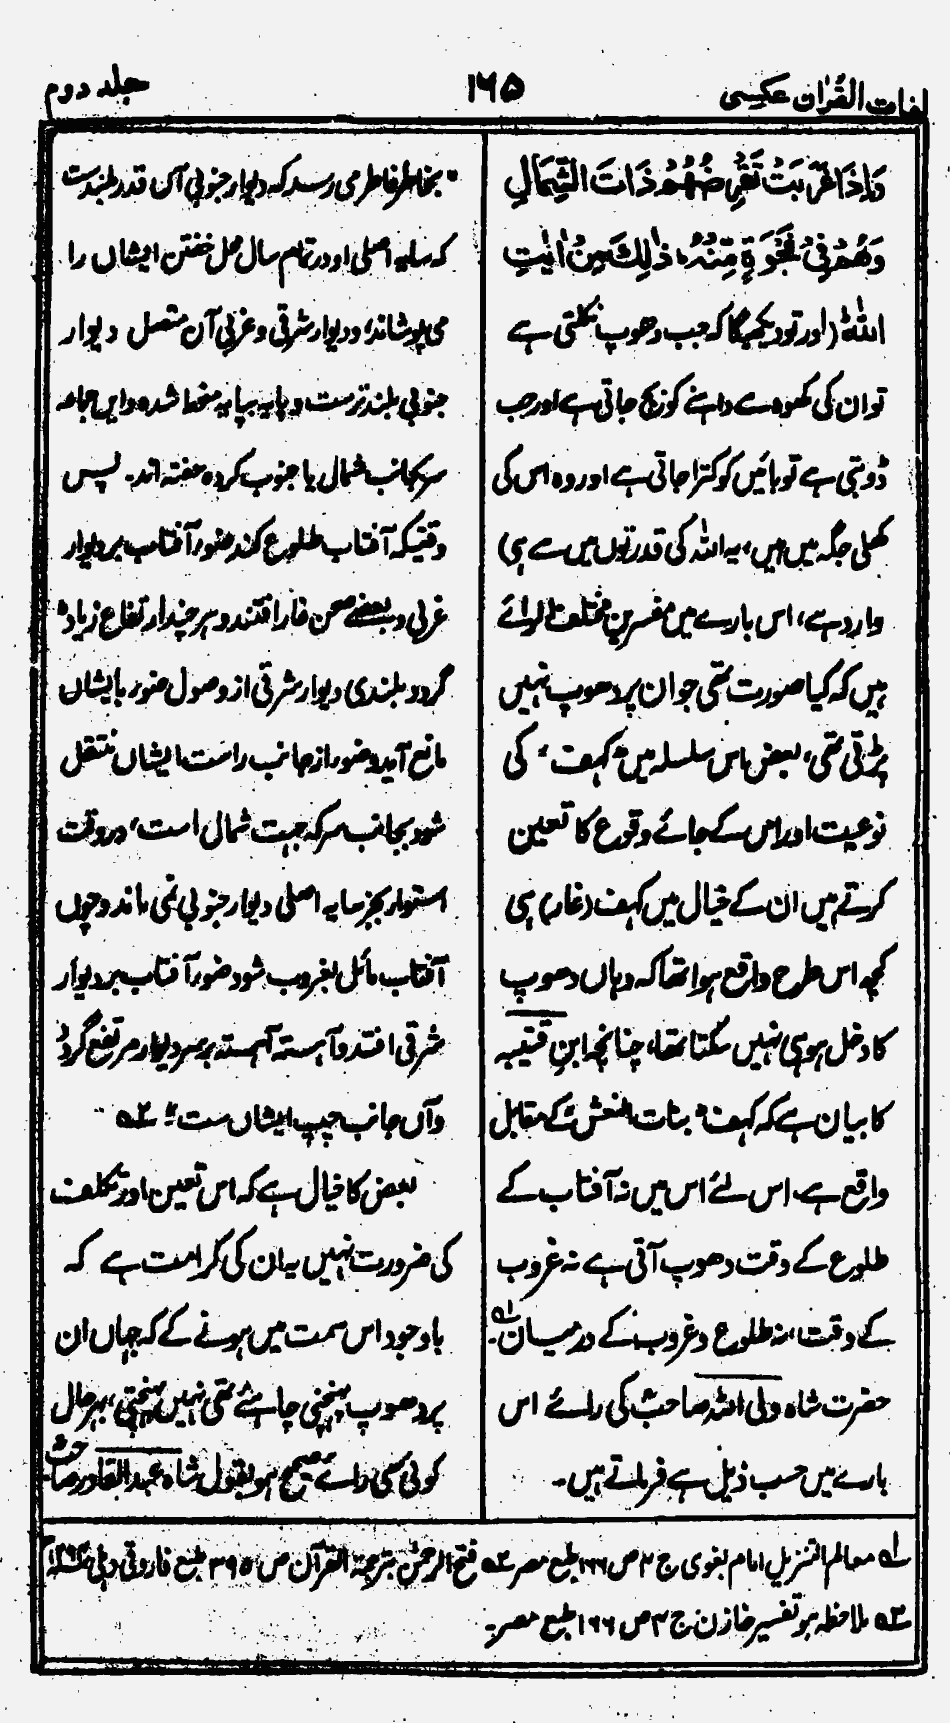 لغات القُرآن عکسی
۱۶۵
جلد دوم
وَاِذَا غَرَبَتْ تَقْرِضُهُمْ ذَاتَ الشِّمَالِ
وَهُمْ فِیْ فَجْوَةٍ مِّنْهُ ؕ ذٰلِكَ مِنْ اٰیٰتِ
اللّٰہِ (اور تو دیکھیگا کہ جب دھوپ نکلتی ہے
تو ان کی کھوہ سے داہنے کو بچ جاتی ہے اور جب
ڈوبتی ہے تو بائیں کو کترا جاتی ہے اور وہ اس کی
کھلی جگہ میں ہیں، یہ اللہ کی قدرتوں میں سے ہی)
وارد ہے، اس بارے میں مفسرین مختلف الرائے
ہیں کہ کیا صورت تھی جو ان پر دھوپ نہیں
پڑتی تھی، بعض اس سلسلہ میں "کہف" کی
نوعیت اور اس کے جائے وقوع کا تعین
کرتے ہیں ان کے خیال میں کہف (غار) ہی
کچھ اس طرح واقع ہوا تھا کہ وہاں دھوپ
کا دخل ہو ہی نہیں سکتا تھا، چنانچہ ابن قتیبہ
کا بیان ہے کہ کہف "بنات النعش" کے مقابل
واقع ہے، اس لئے اس میں نہ آفتاب کے
طلوع کے وقت دھوپ آتی ہے نہ غروب
کے وقت، نہ طلوع و غروب کے درمیان ۱ھ۔
حضرت شاہ ولی اللہ صاحبؒ کی رائے اس
بارے میں حسب ذیل ہے فرماتے ہیں۔
"بخاطر فاطر می رسد کہ دیوار جنوبی آں قدر بلندست
کہ سایہ اصلی او در تمام سال محل خفتن ایشاں را
می پوشاند، و دیوار شرقی و غربی آن متصل دیوار
جنوبی بلند ترست و پایہ بپایہ منحط شدہ و ایں جماعہ
سر بجانب شمال پا جنوب کردہ خفتہ اند۔ پس
وقتیکہ آفتاب طلوع کند ضوء آفتاب بر دیوار
غربی و بعضے صحن غار افتند و ہر چند ارتفاع زیادہ
گردد بلندی دیوار شرقی از وصول ضوء بایشاں
مانع آید و ضوء از جانب راست ایشاں منتقل
شود بجانب سر کہ جہت شمال است، در وقت
استواء بجز سایہ اصلی دیوار جنوبی نمی ماند و چوں
آفتاب مائل بغروب شود ضوء آفتاب بر دیوار
شرقی افتد و آہستہ آہستہ بر سر دیوار مرتفع گردد
و آں جانب چپ ایشاں ست" ۲ھ
بعض کا خیال ہے کہ اس تعین اور تکلف
کی ضرورت نہیں یہ ان کی کرامت ہے کہ
باوجود اس سمت میں ہونے کے کہ جہاں ان
پر دھوپ پہنچنی چاہئے تھی نہیں پہنچتی، بہر حال
کوئی سی رائے صحیح ہو بقول شاہ عبد القادر صاحبؒ
۱ھ معالم التنزیل امام بغوی ج ۳ ص ۱۶۶ طبع مصر ۲ھ فتح الرحمٰن بترجمۃ القرآن ص ۳۹۵ طبع فاروقی دہلی
۳ھ ملاحظہ ہو تفسیر خازن ج ۳ ص ۱۶۶ طبع مصر۔